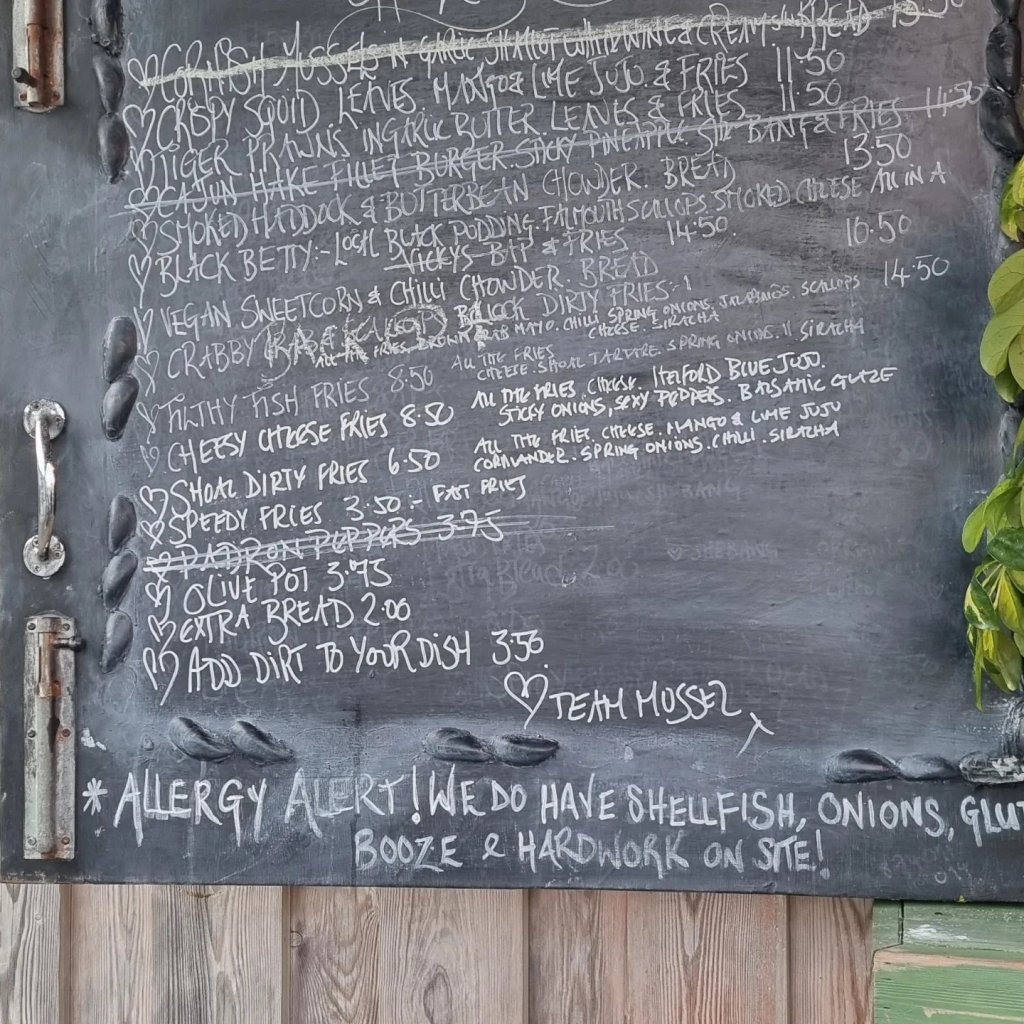 CORNISH MUSSELS IN GARLIC SHALLOT WHITE WINE & CREAM SAUCE. BREAD
CRISPY SQUID LEAVES. MANGO & LIME JUJU & FRIES 11.50
TIGER PRAWNS IN GARLIC BUTTER. LEAVES & FRIES 11.50
CAJUN HAKE FILLET BURGER. STICKY PINEAPPLE. & FRIES 11.50
SMOKED HADDOCK & BUTTERBEAN CHOWDER. BREAD 13.50
BLACK BETTY:- LOCAL BLACK PUDDING. FALMOUTH SCALLOPS SMOKED CHEESE ALL IN A
BAP & FRIES 14.50.
VEGAN SWEETCORN & CHILLI CHOWDER. BREAD 10.50
CRABBY DIRTY FRIES:- 14.50
ALL THE FRIES. BROWN CRAB MAYO. CHILLI SPRING ONIONS. JALAPENOS. SCALLOPS
CHEESE. SIRACHA
FILTHY FISH FRIES 8.50 ALL THE FRIES
CHEESE. SHOAL TARTARE. SPRING ONIONS. SIRACHA
CHEESY CHEESE FRIES 8.50 ALL THE FRIES. CHEESE. HELFORD BLUE JUJU.
STICKY ONIONS, SEXY PEPPERS. BALSAMIC GLAZE
SHOAL DIRTY FRIES 6.50 ALL THE FRIES. CHEESE. MANGO & LIME JUJU
CORIANDER. SPRING ONIONS. CHILLI. SIRACHA
SPEEDY FRIES 3.50:- FAST FRIES
PADRON PEPPERS 3.75
OLIVE POT 3.75
EXTRA BREAD 2.00
ADD DIRT TO YOUR DISH 3.50.
TEAM MUSSEL
* ALLERGY ALERT! WE DO HAVE SHELLFISH, ONIONS, GLUT
BOOZE & HARDWORK ON SITE!